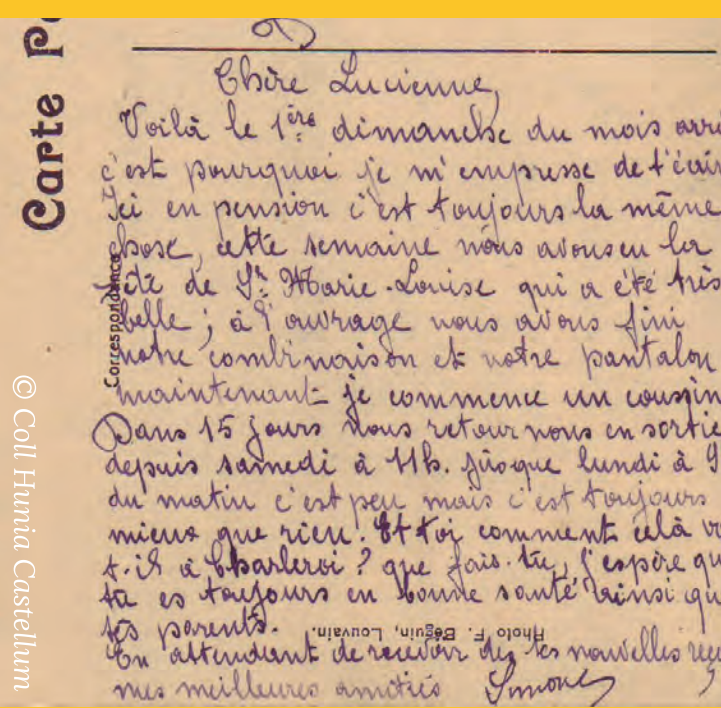 Carte Po
Chère Lucienne,
Voilà le 1ère dimanche du mois arri
c'est pourquoi je m'empresse de t'écrir
Ici en pension c'est toujours la même
chose, cette semaine nous avons eu la
fête de Sr Marie-Louise qui a été très
belle ; à l'ouvrage nous avons fini
notre combinaison et notre pantalon
maintenant je commence un coussin
Dans 15 jours nous retournons en sortie
depuis samedi à 11h. jusque lundi à 9
du matin c'est peu mais c'est toujours
mieux que rien. Et toi comment celà va
t-il à Charleroi ? que fais-tu, j'espère que
tu es toujours en bonne santé ainsi que
tes parents.
En attendant de recevoir de tes nouvelles reç
mes meilleures amitiés Simone
Correspondance
Photo F. Béguin, Louvain.
© Coll Hunia Castellum